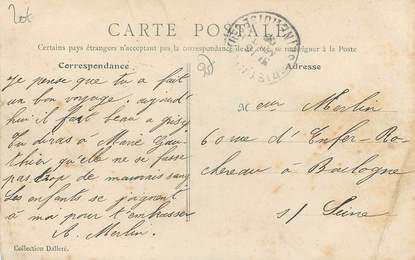 CARTE POSTALE
Certains pays étrangers n'acceptant pas la correspondance de ce côté, se renseigner à la Poste
Correspondance
Adresse
Je pense que tu a fait
un bon voyage, aujourd
hui il fait beau a
Tu diras à Marie Gau
thier qu'elle ne se fasse
pas trop de mauvais sang
Les enfants se joignent
à moi pour t'embrasser
A. Merlin.
Merlin
60 rue d'Enfer-Ro
chereau à Boulogne
s/ Seine
Collection Dalleré.